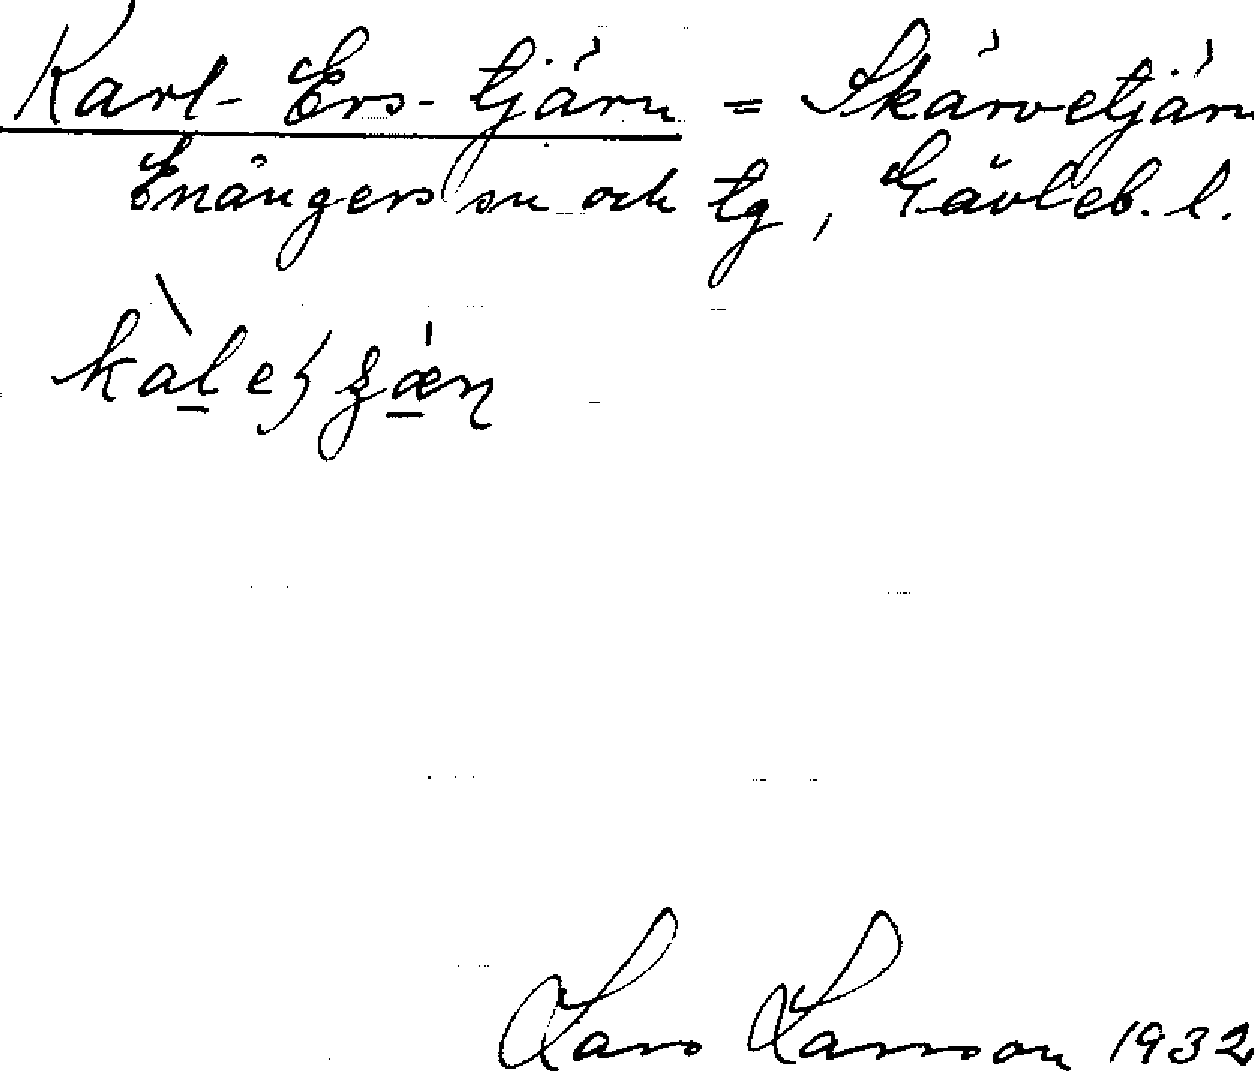 Karl-Ers-tjärn = Skärvetjärn
Enångers sn och tg, Gävleb. l.
Lars Larsson 1932